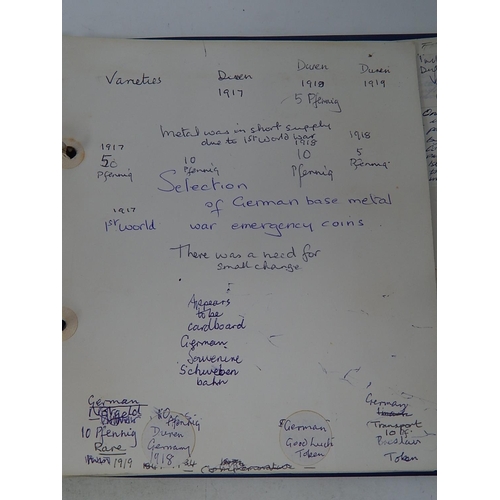 Varieties
Duren
1917
Duren
1918
5 Pfennig
Duren
1919
Metal was in short supply
due to 1st World War
1917
50
Pfennig
10
Pfennig
1918
10
Pfennig
1918
5
Pfennig
Selection
of German base metal
1917
1st World war emergency coins
There was a need for
small change
Appears
to be
cardboard
German
Souvenire
Schweben
bahn
German
Notgeld
10 Pfennig
Rare
1919
Pfennig
Duren
Germany
1918
German
Good Luck
Token
German
Transport
Token